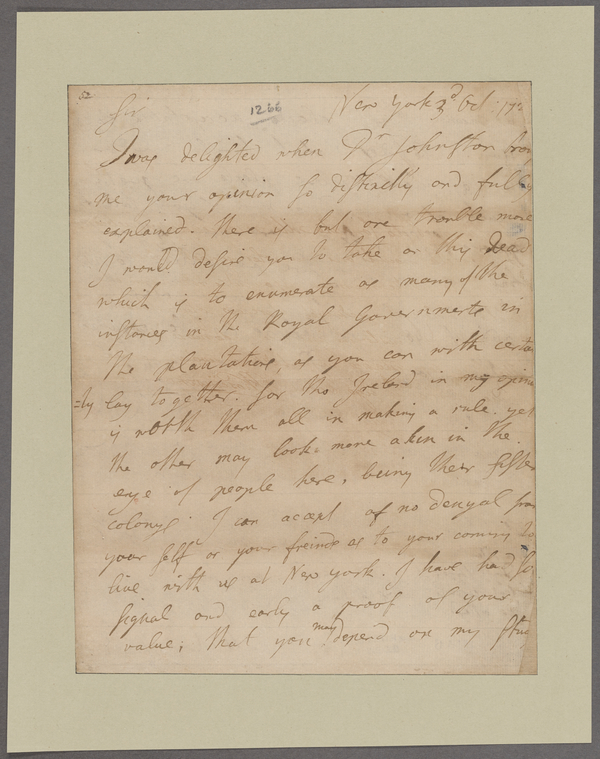 52
1266
New York 3d Oct: 172
Sir
I was delighted when Dr Johnston
me your opinion so distinctly and fully
explained. There is but one trouble more
I would desire you to take on this head
which is to enumerate as many of the
instances in the Royal Governments in
the plantations, as you can with certain
=ty lay together. for tho Ireland in my opinion
is worth them all in making a rule. yet
the other may look more akin in the
eye of people here, being their sister
colonys I can accept of no denyal from
your self or your freinds as to your coming to
live with us at New york. I have had so
signal and early a proof of your
value; that you may depend on my